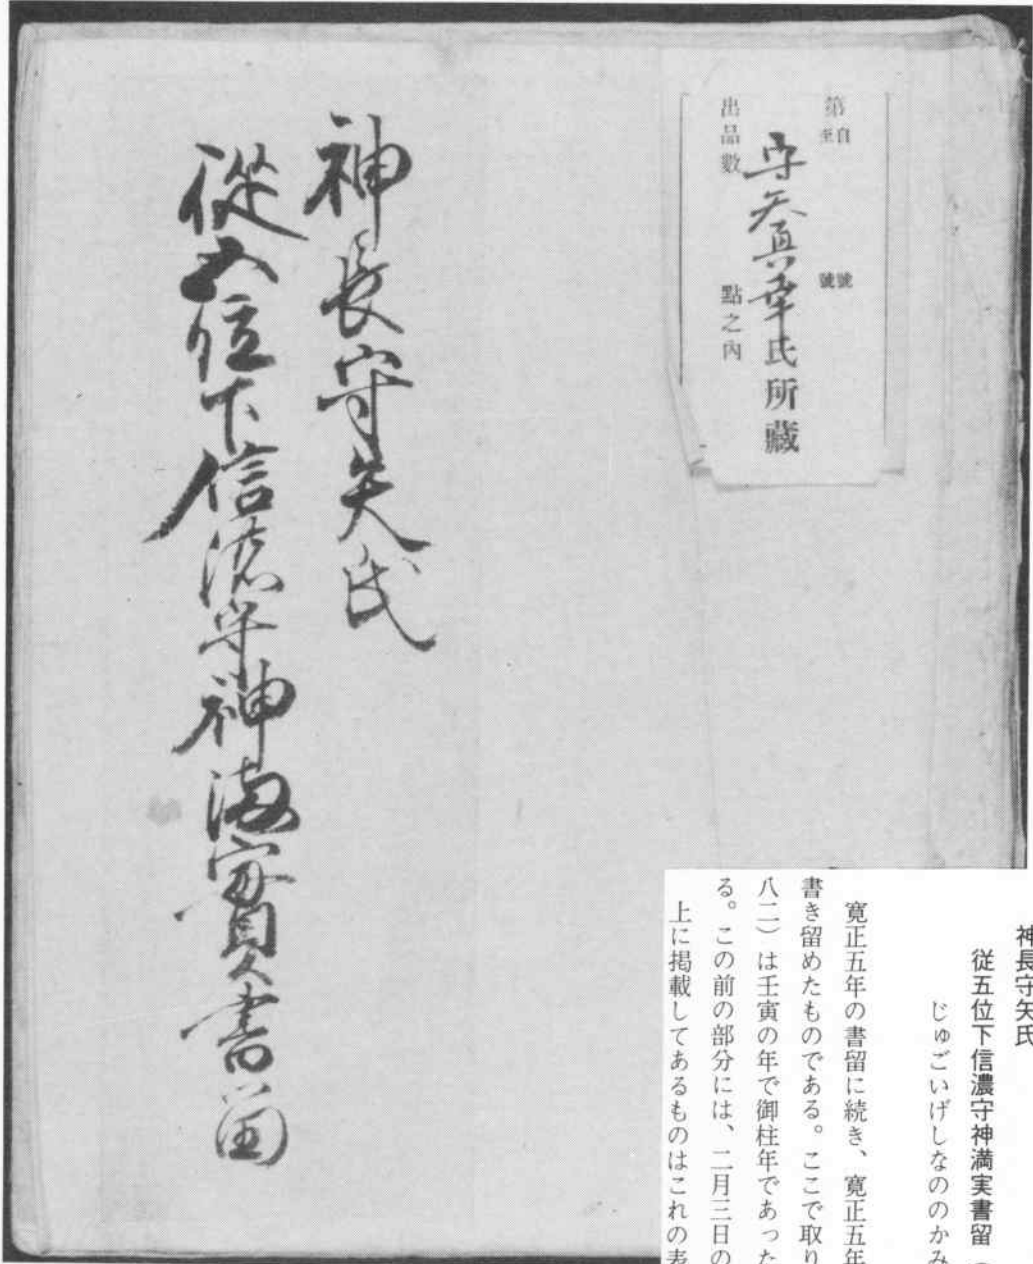 第
自
至
號
號
守矢真幸氏所藏
出品數
點之內
神長守矢氏
從五位下信濃守神満實書留
神長守矢氏
従五位下信濃守神満実書留
じゅごいげしなののかみ
寛正五年の書留に続き、寛正五年
書き留めたものである。ここで取り
八二)は壬寅の年で御柱年であった
る。この前の部分には、二月三日の
上に掲載してあるものはこれの表